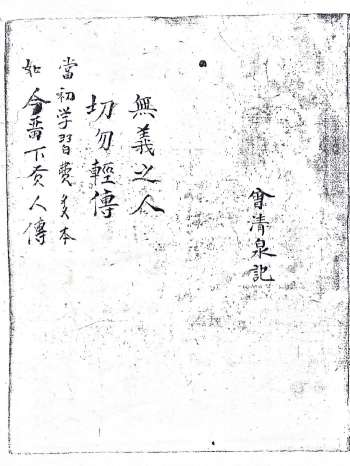 曾清泉記
無義之人
切勿輕傳
當初学習費多本
如今下人傳